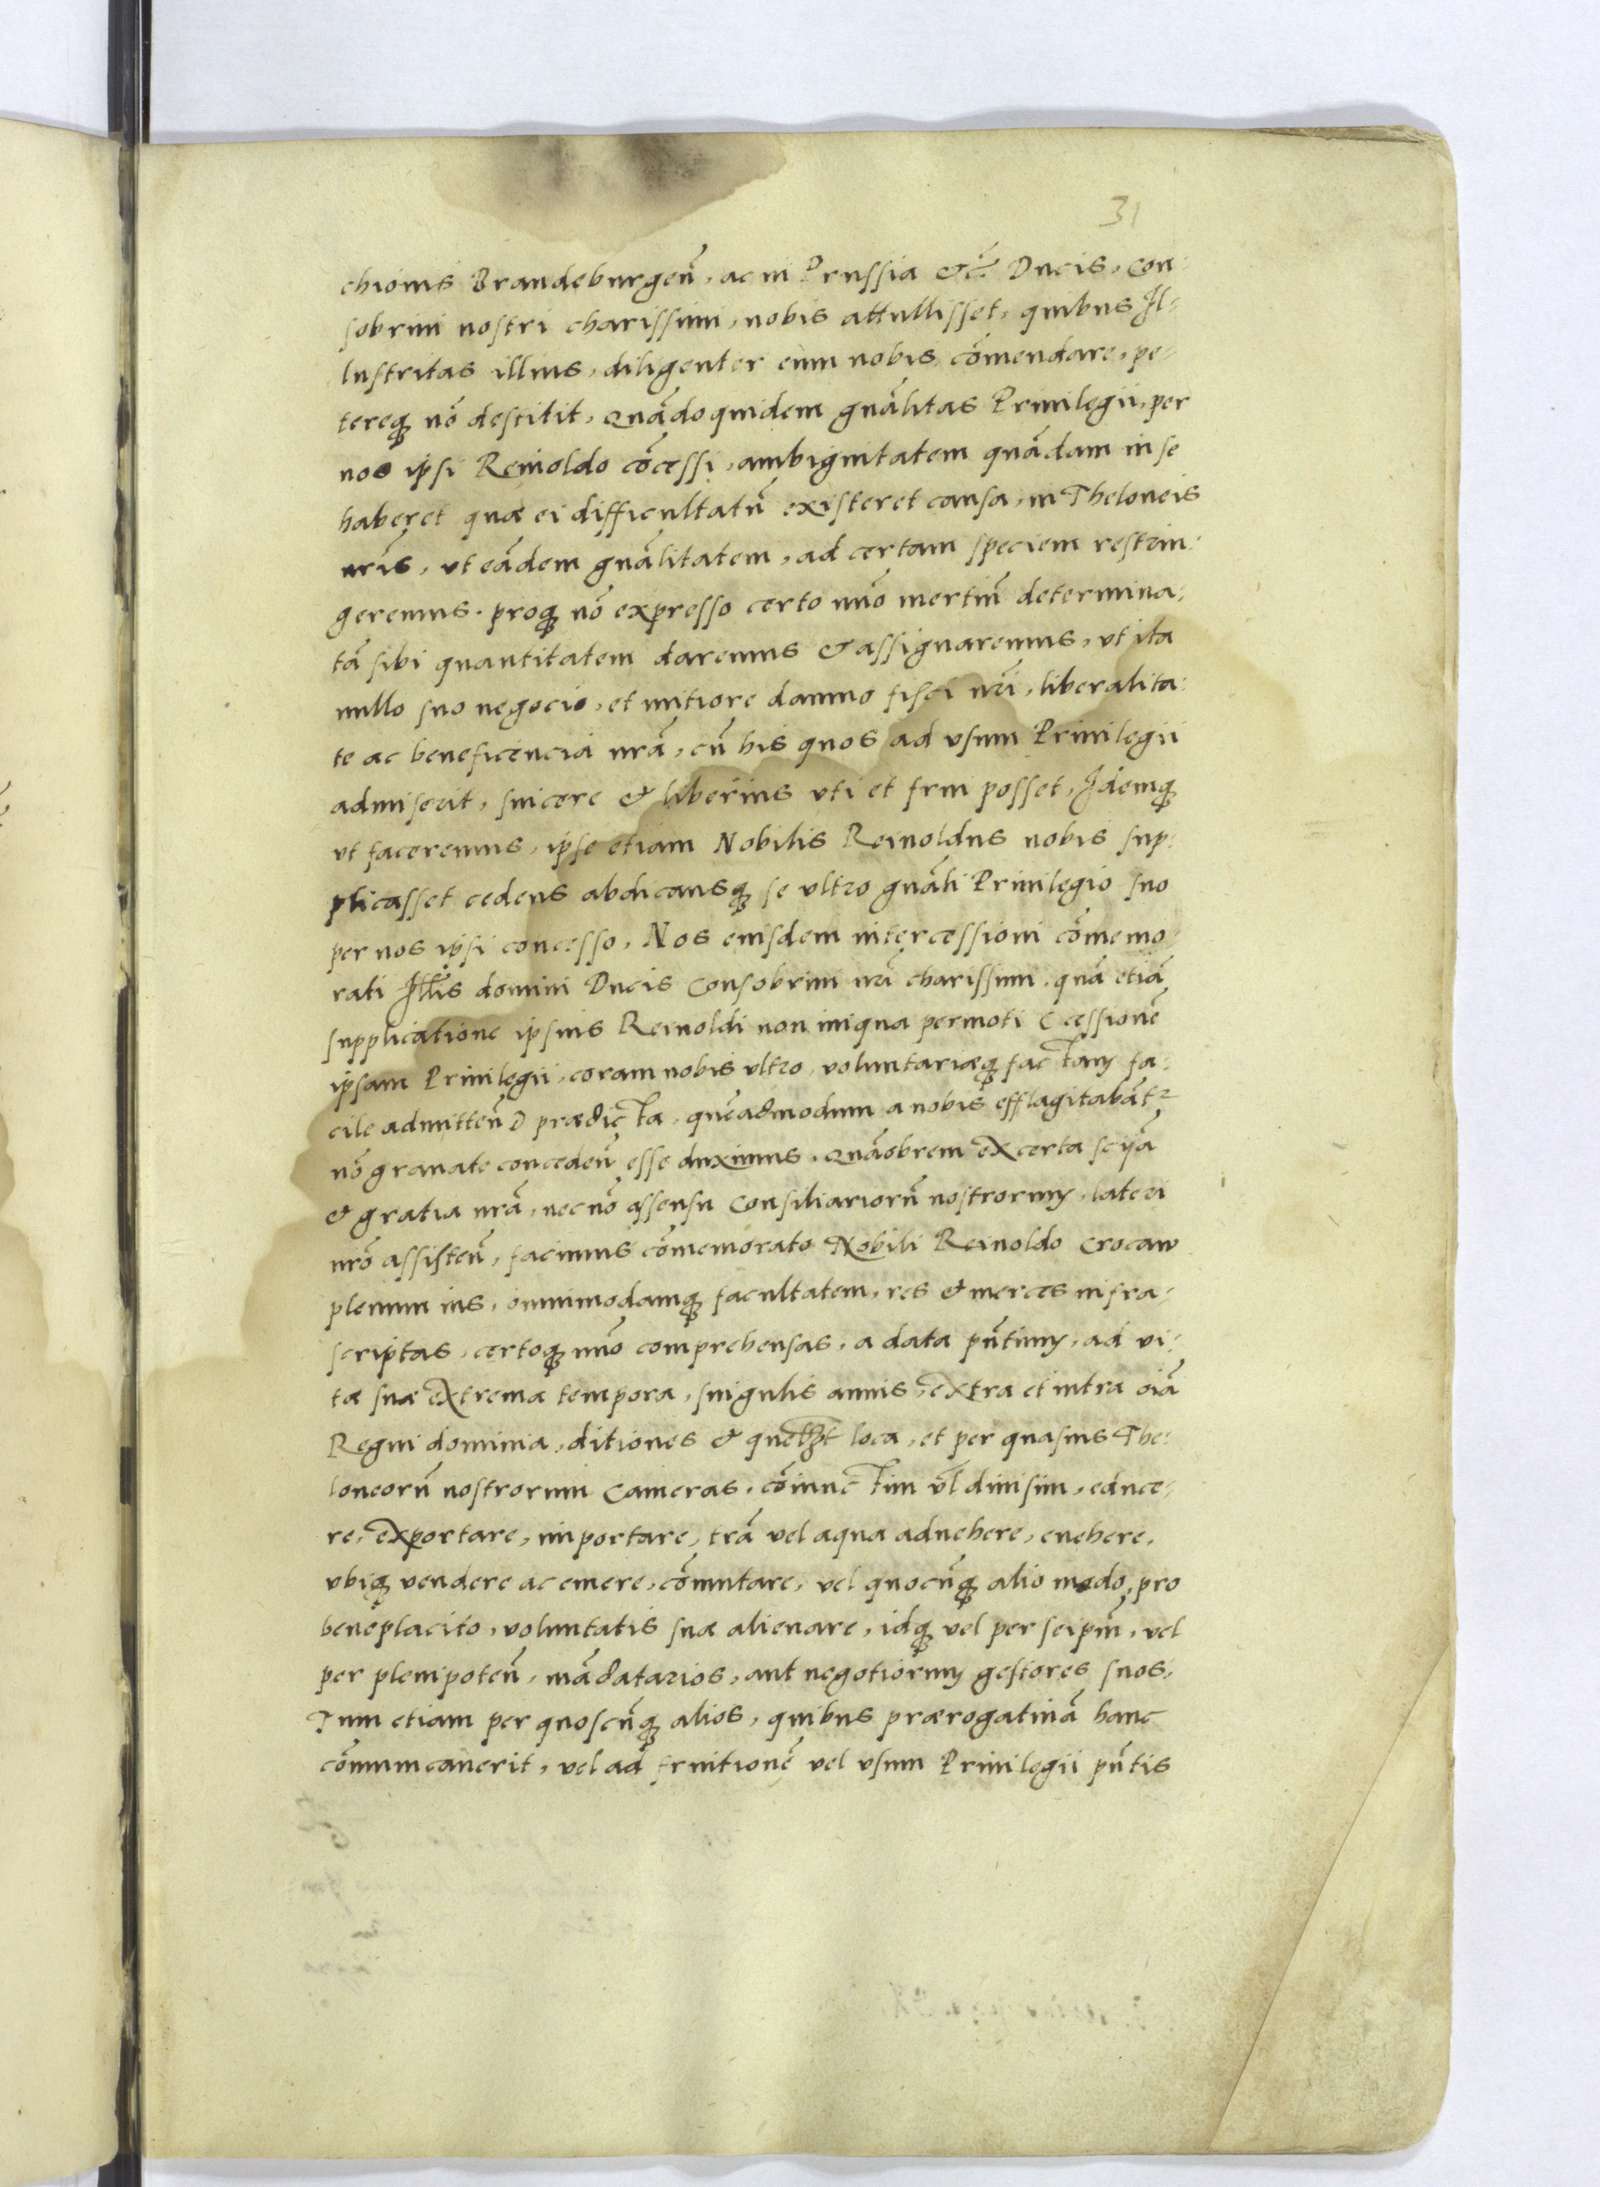 31
chionis Brandeburgeñ, ac in Prussia &c̃ Ducis, Con-
sobrini nostri charissimi, nobis attullisset, quibus Il-
lustritas illius, diligenter eum nobis cõmendare, pe-
tereq̃ nõ destitit, Quãdo quidem gnãlitas Priuilegii, per
nos ipsi Reinoldo cõcessi, ambiguitatem quãdam in se
haberet quæ ei difficultatũ existeret causa, in Theloneis
nr̃is, vt eãdem gnãlitatem, ad certam speciem restrin-
geremus. proq̃ nõ expresso certo nũo mertiũ determina-
tã sibi quantitatem daremus & assignaremus, vt ita
nullo suo negocio, et mitiore damno fisci nr̃i, liberalita-
te ac beneficencia nrã, cũ his quos ad vsum Priuilegii
admiserit, sincere & liberius vti et frui posset, Idemq̃
vt faceremus, ipse etiam Nobilis Reinoldus nobis sup-
plicasset cedens abdicansq̃ se vltro gnãli Priuilegio suo
per nos ipsi concesso, Nos eiusdem intercessioni cõmemo-
rati Illis̃ domini Ducis Consobrini nr̃i charissimi, quã etiã
supplicatione ipsius Reinoldi non iniqua permoti Cessionẽ
ipsam Priuilegii, coram nobis vltro, voluntariæq̃ factam fa-
cile admitteñ prædicta, quẽadmodum a nobis efflagitabãtr
nõ grauate concedeñ esse duximus, Quãobrem ex certa sc̃ijã
& gratia nrã, nec nõ assensu Consiliariorũ nostrorum, lateri
nrõ assisteñ, facimus cõmemorato Nobili Reinoldo Crocaw
plenum ius, omnimodamq̃ facultatem, res & merces infra-
scriptas, certoq̃ nũo comprehensas, a data pñtium, ad vi-
tæ suæ extrema tempora, singulis annis, extra et intra oĩa
Regni dominia, ditiones & quelibet loca, et per quasuis The-
loneorũ nostrorum Cameras, cõiunctim vl̃ diuisim, educe-
re, exportare, importare, trã vel aqua aduehere, euehere,
vbiq̃ vendere ac emere, cõmutare, vel quocũq̃ alio modo, pro
beneplacito, voluntatis suæ alienare, idq̃ vel per seipm̃, vel
per plenipoteñ, mãdatarios, aut negotiorum gestores suos,
Tum etiam per quoscũq̃ alios, quibus prærogatiuã hanc
cõmunicauerit, vel ad fruitionẽ vel vsum Priuilegii pñtis